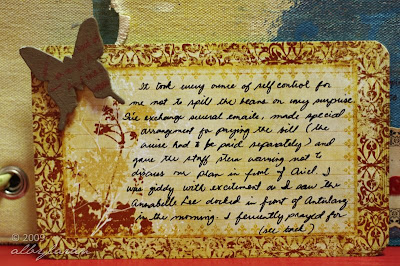 It took every ounce of self control for
me not to spill the beans on my surprise.
I've exchange several emails, made special
arrangement for paying the bill (the
cruise had to be paid separately) and
gave the staff stern warning not to
discuss our plan in front of Ariel. I
was giddy with excitement as I saw the
Annabelle Lee docked in front of
in the morning. I fervently prayed for
(see back)
© 2009